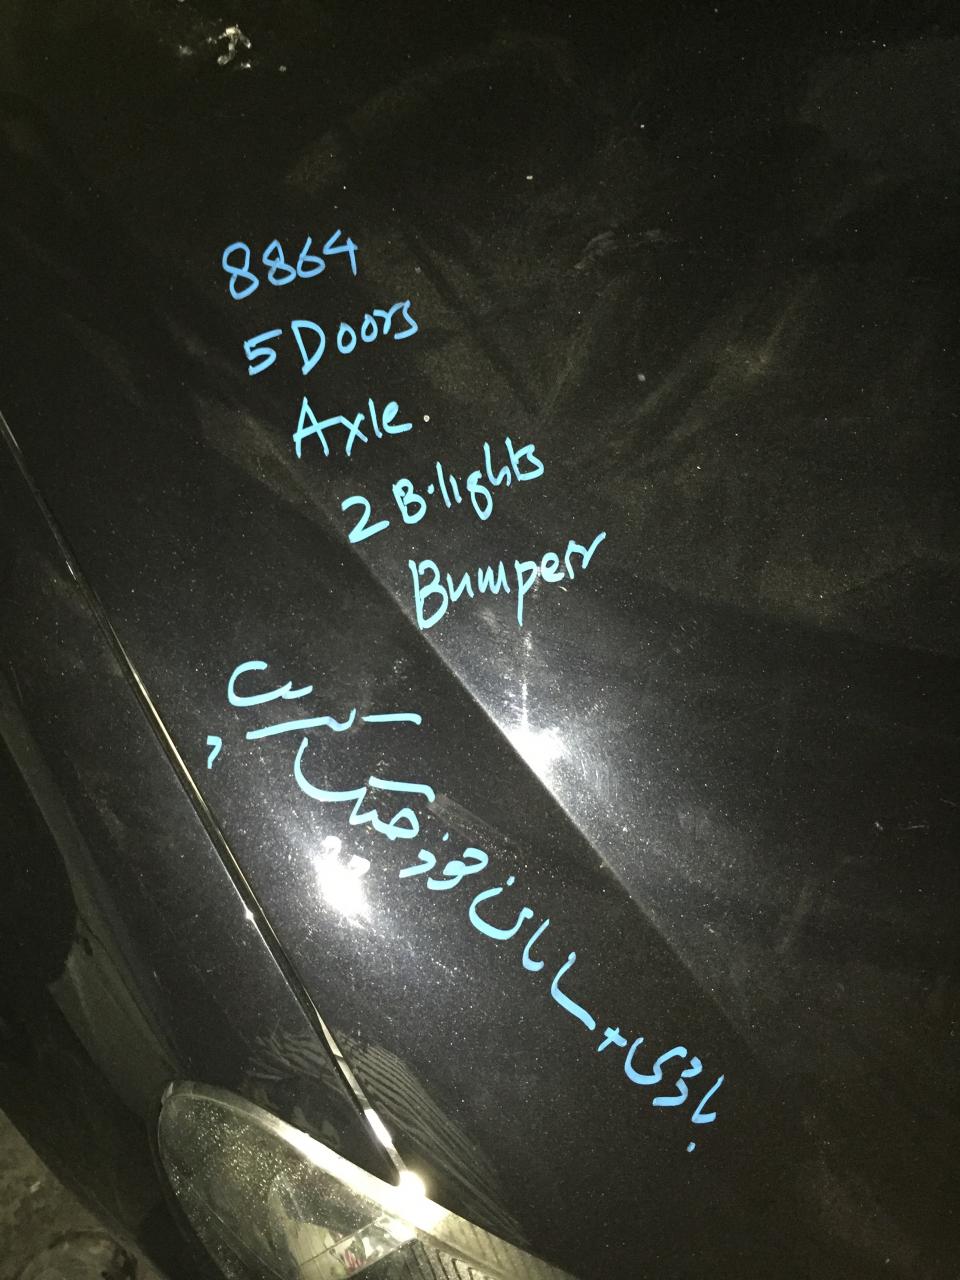 8864
5 Doors
Axle.
2 B.lights
Bumper
باڈی + سامان خوذ